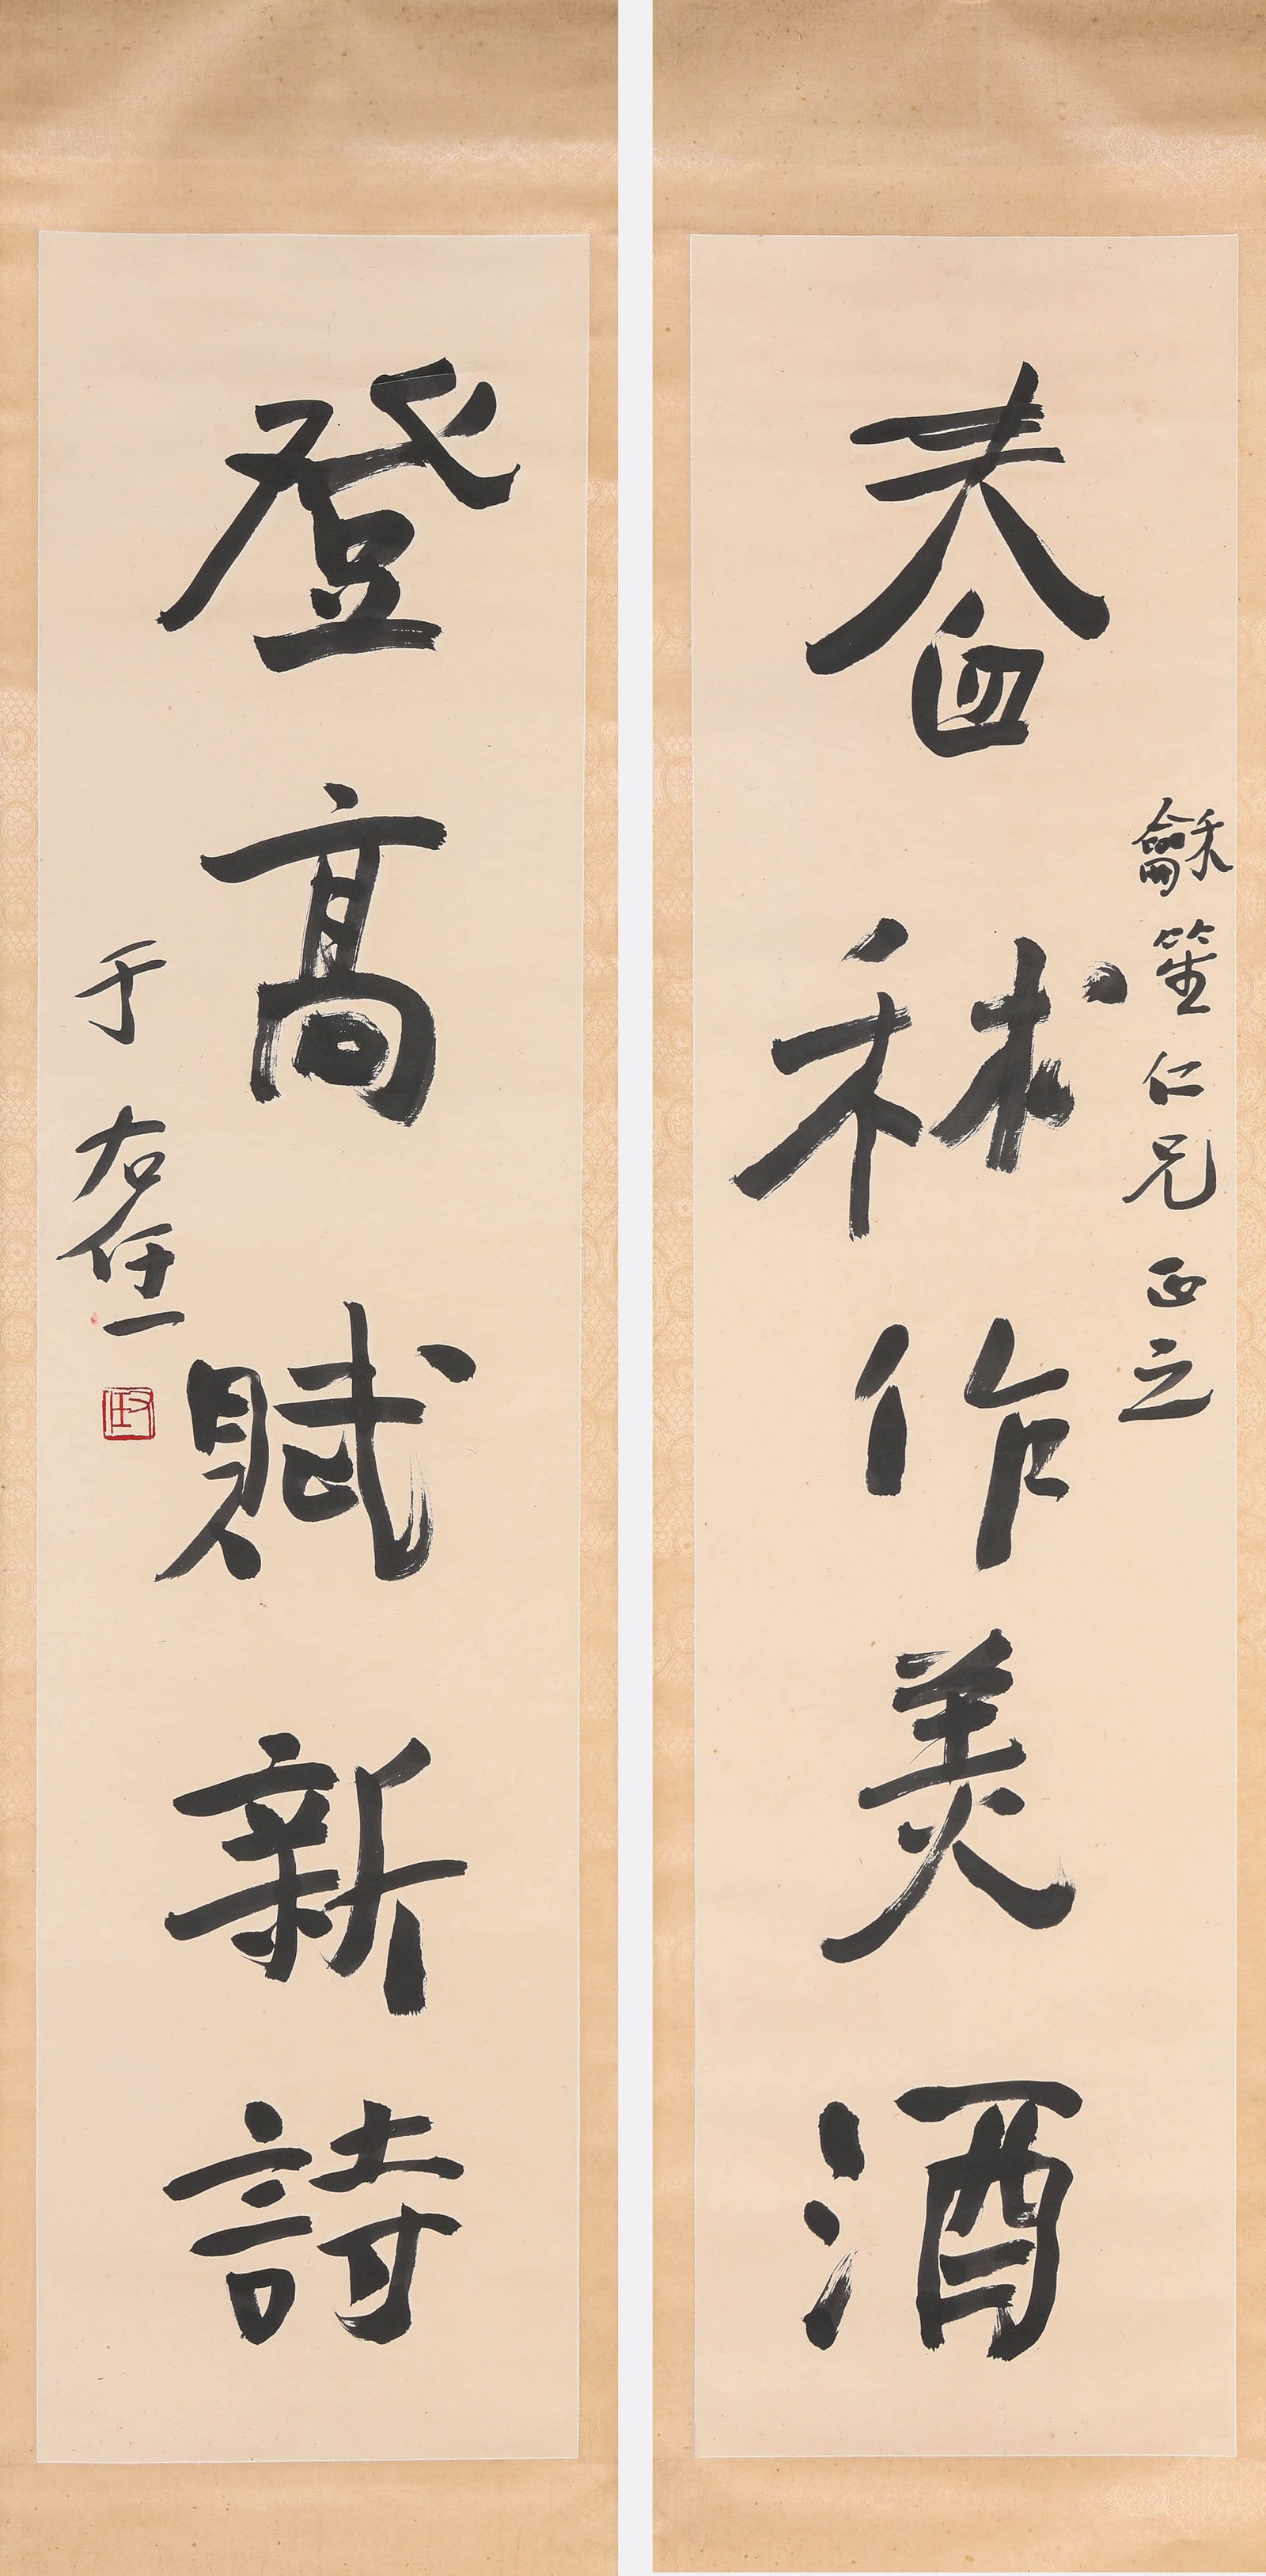 舂秫作美酒
龢笙仁兄正之
登高賦新詩
于右任
右任